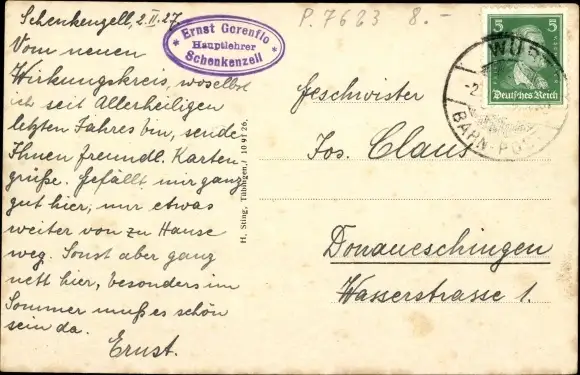 Schenkenzell, 2.II.27.
Vom neuen
Wirkungskreis, woselbst
ich seit Allerheiligen
letzten Jahres bin, sende
Ihnen freundl. Karten-
grüße. Gefällt mir ganz
gut hier, nur etwas
weiter von zu Hause
weg. Sonst aber ganz
nett hier, besonders im
Sommer muß es schön
sein da.
Ernst.
* Ernst Gorenflo *
Hauptlehrer
Schenkenzell
H. Sting, Tübingen,
P. 7623 8.-
5 5
Deutsches Reich
BAHN-POST
Geschwister
Jos. Claus
Donaueschingen
Wasserstrasse 1.